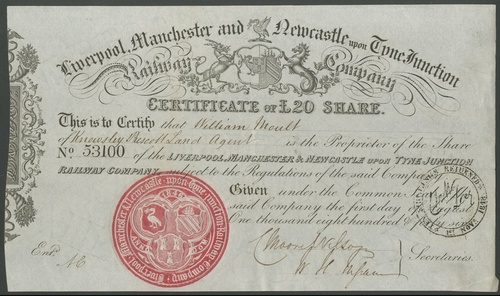 Liverpool, Manchester and Newcastle upon Tyne Junction
Railway Company
CERTIFICATE OF £20 SHARE.
This is to Certify that William Moult
of Knowsley Prescot Land Agent is the Proprietor of the Share
No 53100 of the LIVERPOOL, MANCHESTER & NEWCASTLE UPON TYNE JUNCTION
RAILWAY COMPANY, subject to the Regulations of the said Company
Given under the Common
said Company the first day of
One thousand eight hundred & forty
Secretaries.
Entd.
Liverpool, Manchester & Newcastle-upon-Tyne Junction Railway Company
1846